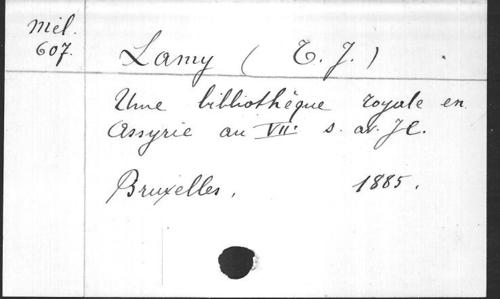 Mél.
607.
Lamy (T. J.)
Une bibliothèque royale en
Assyrie au VIIe s. av. J C.
Bruxelles, 1885.